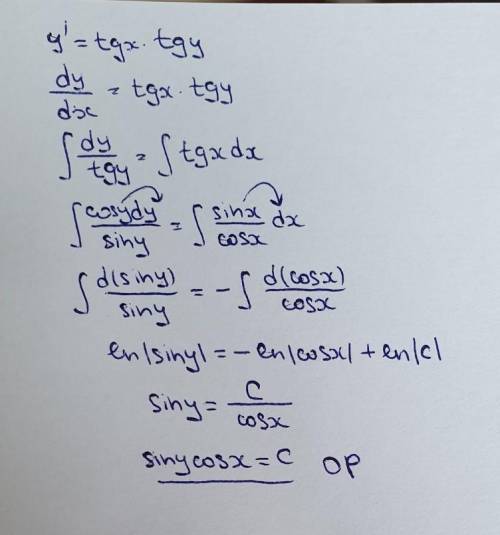 y' = tgx · tgy
dy/dx = tgx · tgy
∫ dy/tgy = ∫ tgx dx
∫ cosydy/siny = ∫ sinx/cosx dx
∫ d(siny)/siny = - ∫ d(cosx)/cosx
ln|siny| = -ln|cosx| + ln|c|
siny = C/cosx
sinycosx = C OP